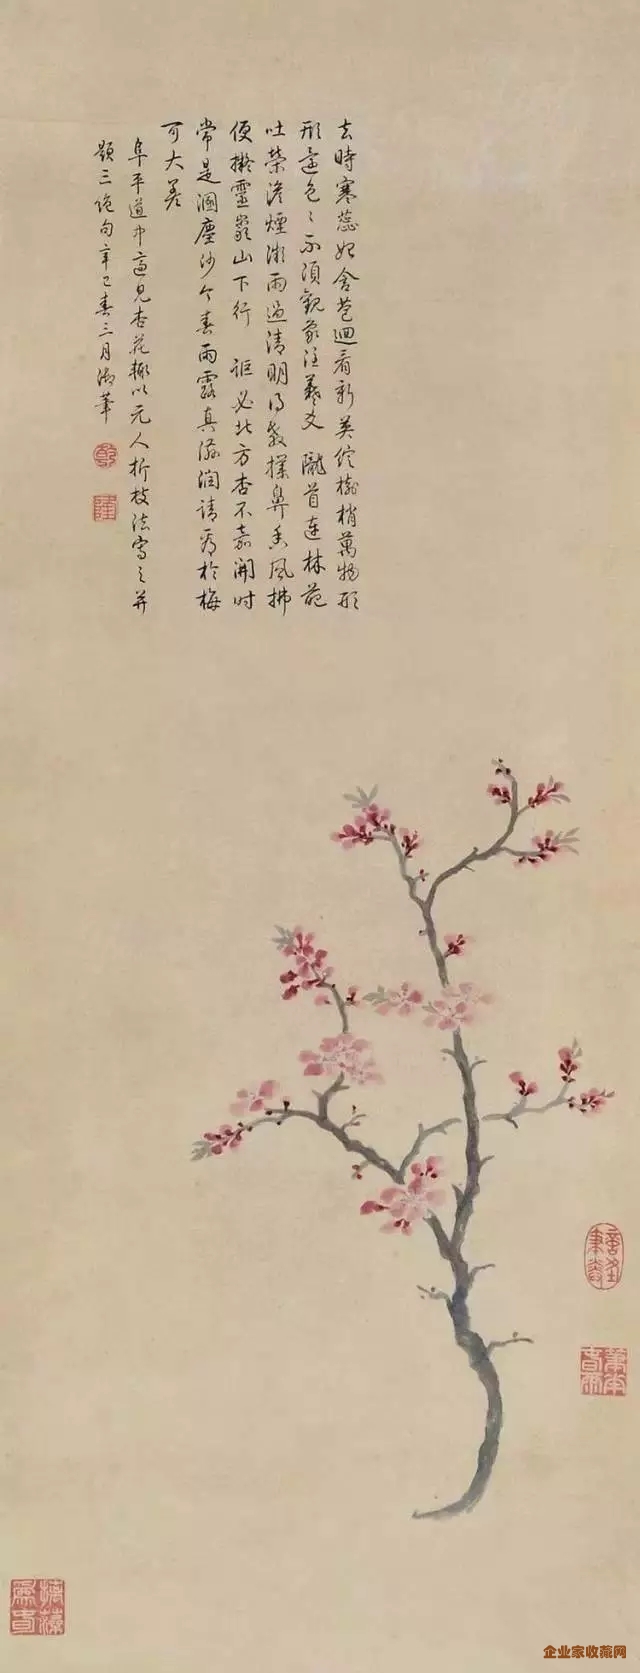 去時寒蕊始含苞迴看新英綻樹梢萬物形
形還色〻不須觀象注羲爻 隴首連林葩
吐榮澹煙微雨過清明教撲鼻香風拂
便擬靈巖山下行 詎必北方杏不嘉開時
常是涸塵沙今春雨露真滋潤請看於梅
可大差
阜平道中適見杏花輒以元人折枝法寫之并
題三絕句辛巳春三月御筆
乾
隆
摛藻為春
企业家收藏网